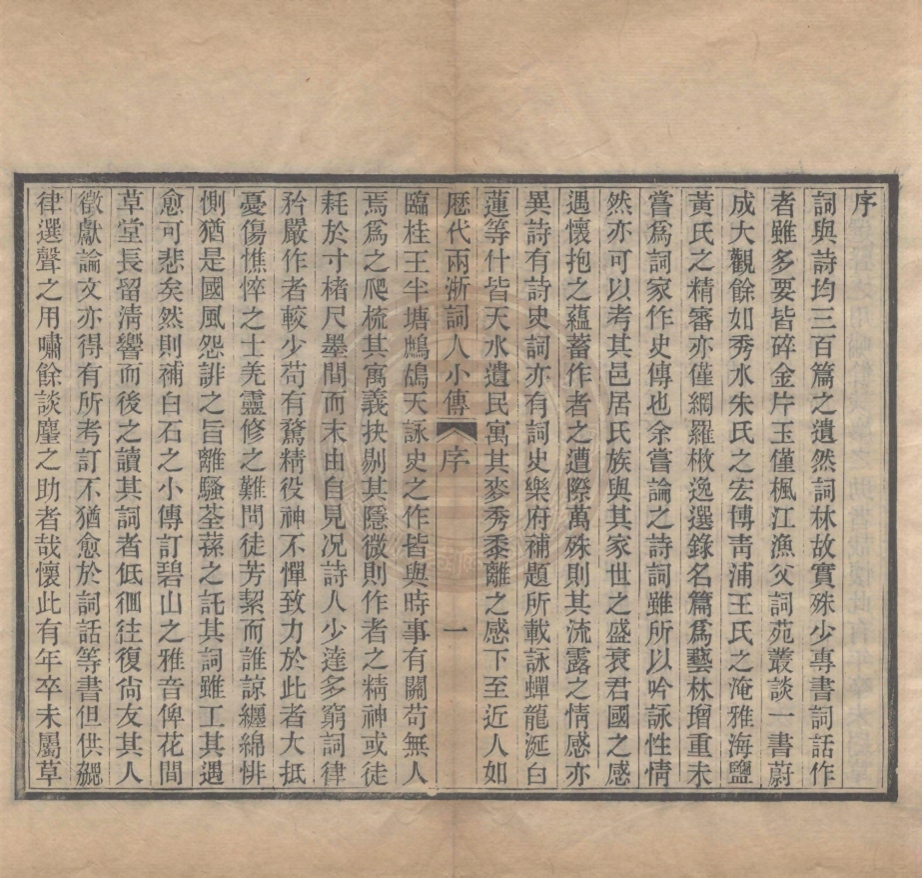 序
詞與詩均三百篇之遺然詞林故實殊少專書詞話作
者雖多要皆碎金片玉僅楓江漁父詞苑叢談一書蔚
成大觀餘如秀水朱氏之宏博靑浦王氏之淹雅海鹽
黃氏之精審亦僅網羅散逸選錄名篇爲藝林增重未
嘗爲詞家作史傳也余嘗論之詩詞雖所以吟詠性情
然亦可以考其邑居氏族與其家世之盛衰君國之感
遇懷抱之蘊蓄作者之遭際萬殊則其流露之情感亦
異詩有詩史詞亦有詞史樂府補題所載詠蟬龍涎白
蓮等什皆天水遺民寓其麥秀黍離之感下至近人如
歷代兩浙詞人小傳 序 一
臨桂王半塘鷓鴣天詠史之作皆與時事有關苟無人
焉爲之爬梳其寓義抉剔其隱微則作者之精神或徒
耗於寸楮尺墨間而末由自見况詩人少達多窮詞律
矜嚴作者較少苟有騖精役神不憚致力於此者大抵
憂傷憔悴之士羌靈修之難問徒芳絜而誰諒纏綿悱
惻猶是國風怨誹之旨離騷荃蓀之託其詞雖工其遇
愈可悲矣然則補白石之小傳訂碧山之雅音俾花間
草堂長留淸響而後之讀其詞者低徊往復尙友其人
徵獻論文亦得有所考訂不猶愈於詞話等書但供勰
律選聲之用嘯餘談麈之助者哉懷此有年卒未屬草